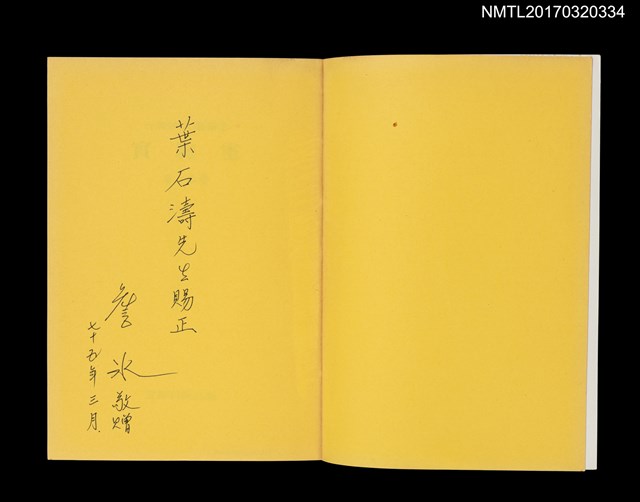 NMTL20170320334
葉石濤先生賜正
詹冰敬贈
七十五年三月